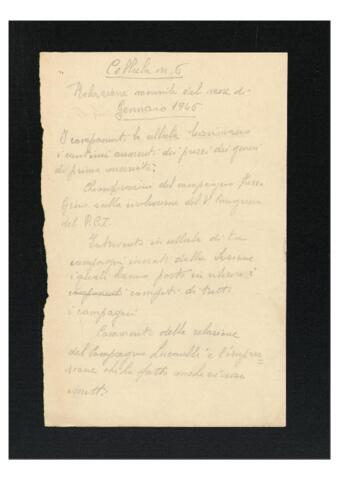 Cellula n. 6
Relazione mensile del mese di
Gennaio 1946
I componenti la cellula
i continui aumenti dei prezzi dei generi
di prima necessità.
del compagno
sulla risoluzione del V° Congresso
del P.C.I.
Interventi in cellula di tre
compagni inviati dalla Sezione
i quali hanno posto in rilievo i
componenti compiti di tutti
i compagni
Commenti della relazione
del Compagno e l'impres=
sione che ha fatto anche ai non